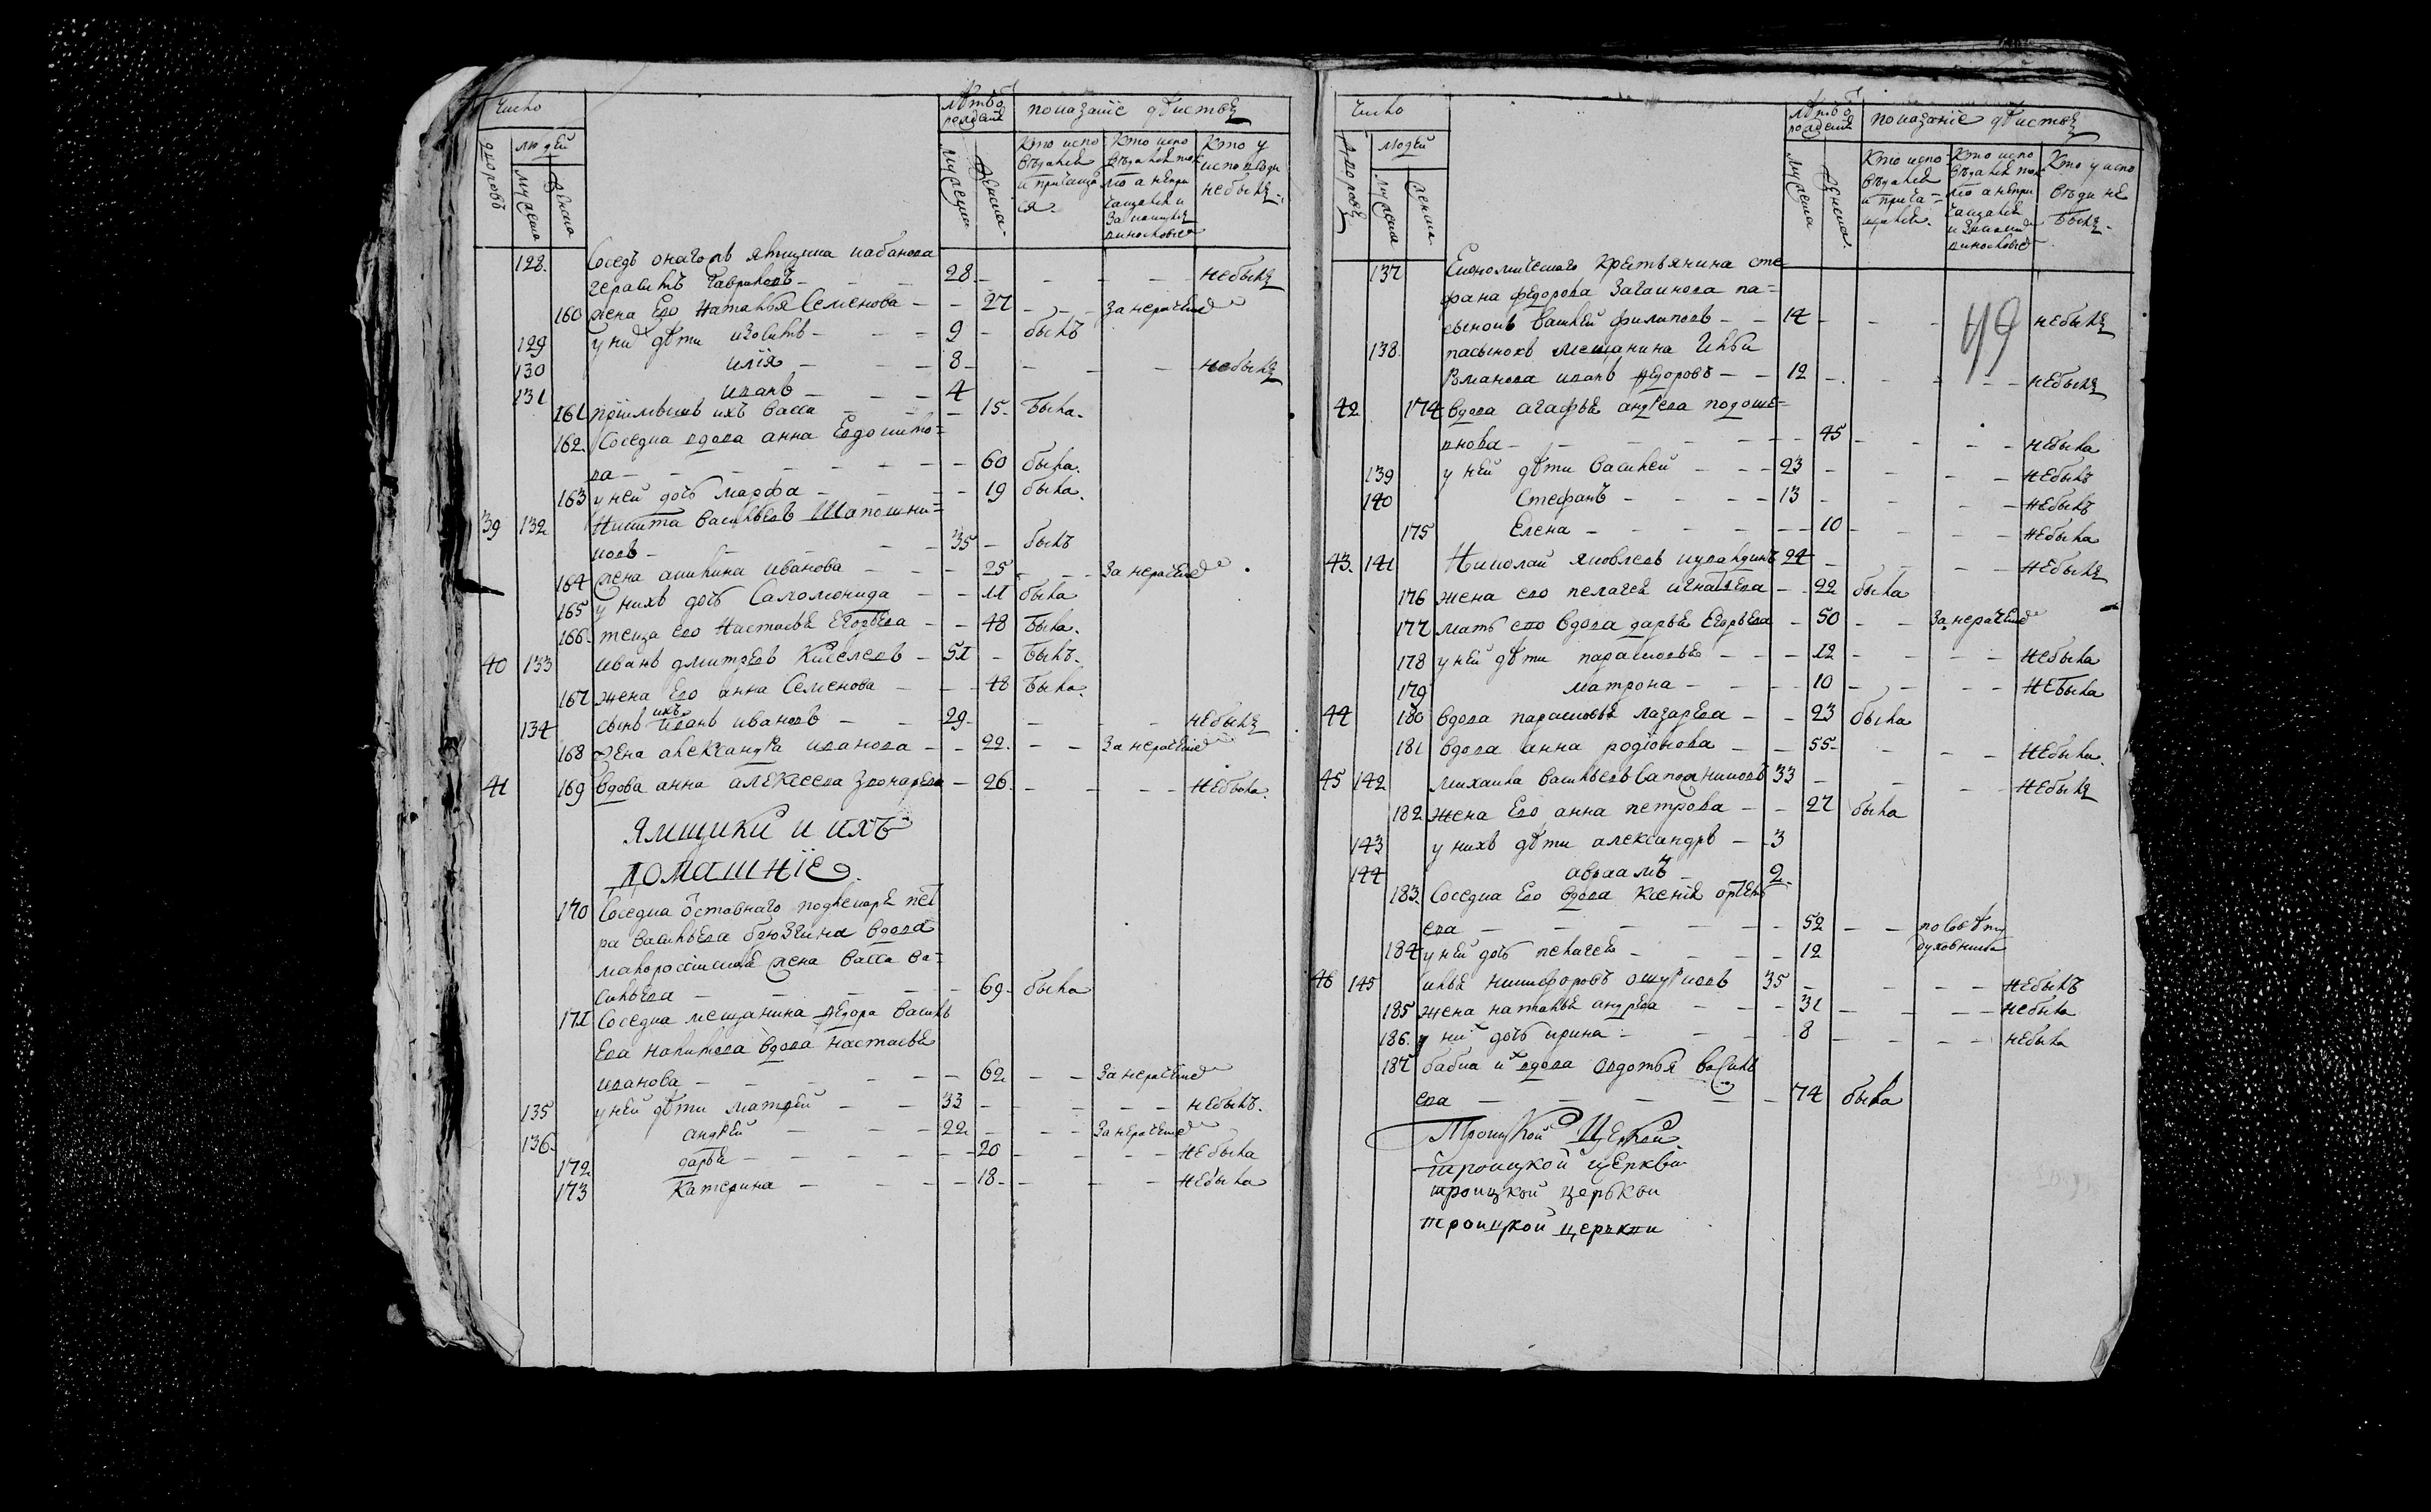 Число
лѣтъ от рожденія
показаніе дѣйствъ
дворовъ
людей
мужеска
женска
мужеска
женска
Кто испо
вѣдался
и причащал
ся.
Кто испо
вѣдался ток
мо а непри
чащался и
за какимъ
виновіемъ
Кто у
исповѣди
небылъ
128. Соседъ онаго ямщика кабанова
герасимъ Гавриловъ – 28 – – – – небылъ
160 жена Его наталья Семенова – – 27 – – – за нерачение
129 у них дѣти изосимъ – 9 – былъ
130 илія – 8 – – – – небылъ
131 иванъ – – 4
161 пріимышъ ихъ васса – – 15. была.
162. Соседка вдова анна Евдокимо=
ва – – – – – – 60 была.
163 у ней дочь марфа – – 19 была.
39 132 Никита васильевъ Шапошни=
ковъ – – – 35 – былъ
164 жена акилина иванова – – 25 – – за нерачение
165 у нихъ дочь Саломонида – – 11 была
166. теща его Настасья Егорьева – – 48 была.
40 133 иванъ дмитреевъ Киселевъ – 51 – былъ.
167 жена Его анна Семенова – – 48 была.
134 сынъ ихъ иванъ ивановъ – – 29 – – – небылъ
168 жена александра иванова – – 22. – – за нерачение
41 169 вдова анна алексеева Звонарева – 26. – – – – небыла.
Ямщики и ихъ
домашніе.
170 Соседка отставнаго подлекаря пет
ра васильева брюзгина вдова
малороссійская жена васса ва=
сильева – – – – – 69 – была
171 Соседка мещанина Федора василь
Ева напитова вдова настасья
иванова – – – – – 62 – – за нерачение
135 у ней дѣти матвей – – 33 – – – – небылъ.
136. андрей – – – 22 – – – за нерачение
172 дарья – – – – 20 – – – небыла
173 Катерина – – – – 18 – – – – небыла
Число
лѣтъ от рожденія
показаніе дѣйствъ
дворовъ
людей
мужеска
женска
мужеска
женска
Кто испо
вѣдался
и прича=
щался.
Кто испо
вѣдался ток
мо а непри
чащался
и за каким
виновіем
Кто у испо
вѣди не
былъ.
49
137 Економическаго крестьянина сте
фана федорова Загаинова па=
сынокъ василей филиповъ – – 14 – – – небылъ
138. пасынокъ мещанина Ильи
Романова иванъ федоровъ – – 12 – – – – небылъ
42 174 вдова агафья андреева подоше=
внова – – – – – – 45 – – – – небыла
139 у ней дѣти василей – – – 23 – – – небылъ
140 Стефанъ – – – – 13 – – – небылъ
175 Елена – – – – – – 10 – – – – небыла
43. 141 Николай яковлевъ 24 – – – – небылъ
176 жена его пелагея игнатьева – – 22 была
177 мать его вдова дарья Егорьева – 50 – – за нерачение
178 у ней дѣти парасковья – – – 12 – – – – небыла
179 матрона – – – – 10 – – – – небыла
44 180 вдова парасковья лазарева – – 23 была
181 вдова анна родіонова – – 55 – – – – небыла.
45 142 михаила васильевъ Сапожниковъ 33 – – – – небылъ
182 жена Его анна петрова – – 27 была
143 у нихъ дѣти александръ – – 3
144 авраамъ – 2.
183. Соседка Его вдова ксенія артемь
ева – – – – – – 52 – – по совѣту
духовника
184 у ней дочь пелагея – – – – 12
46 145 илья никифоровъ ошурковъ 35 – – – – небылъ
185 жена наталья андреева – – – 31 – – – – небыла
186. у них дочь ирина – – – – 8 – – – – небыла
187 бабка их вдова авдотья василь
ева – – – – – – 74 была
Троицкой Церкви.
троицкой церкви
троицкой церькви
троицкой церькви